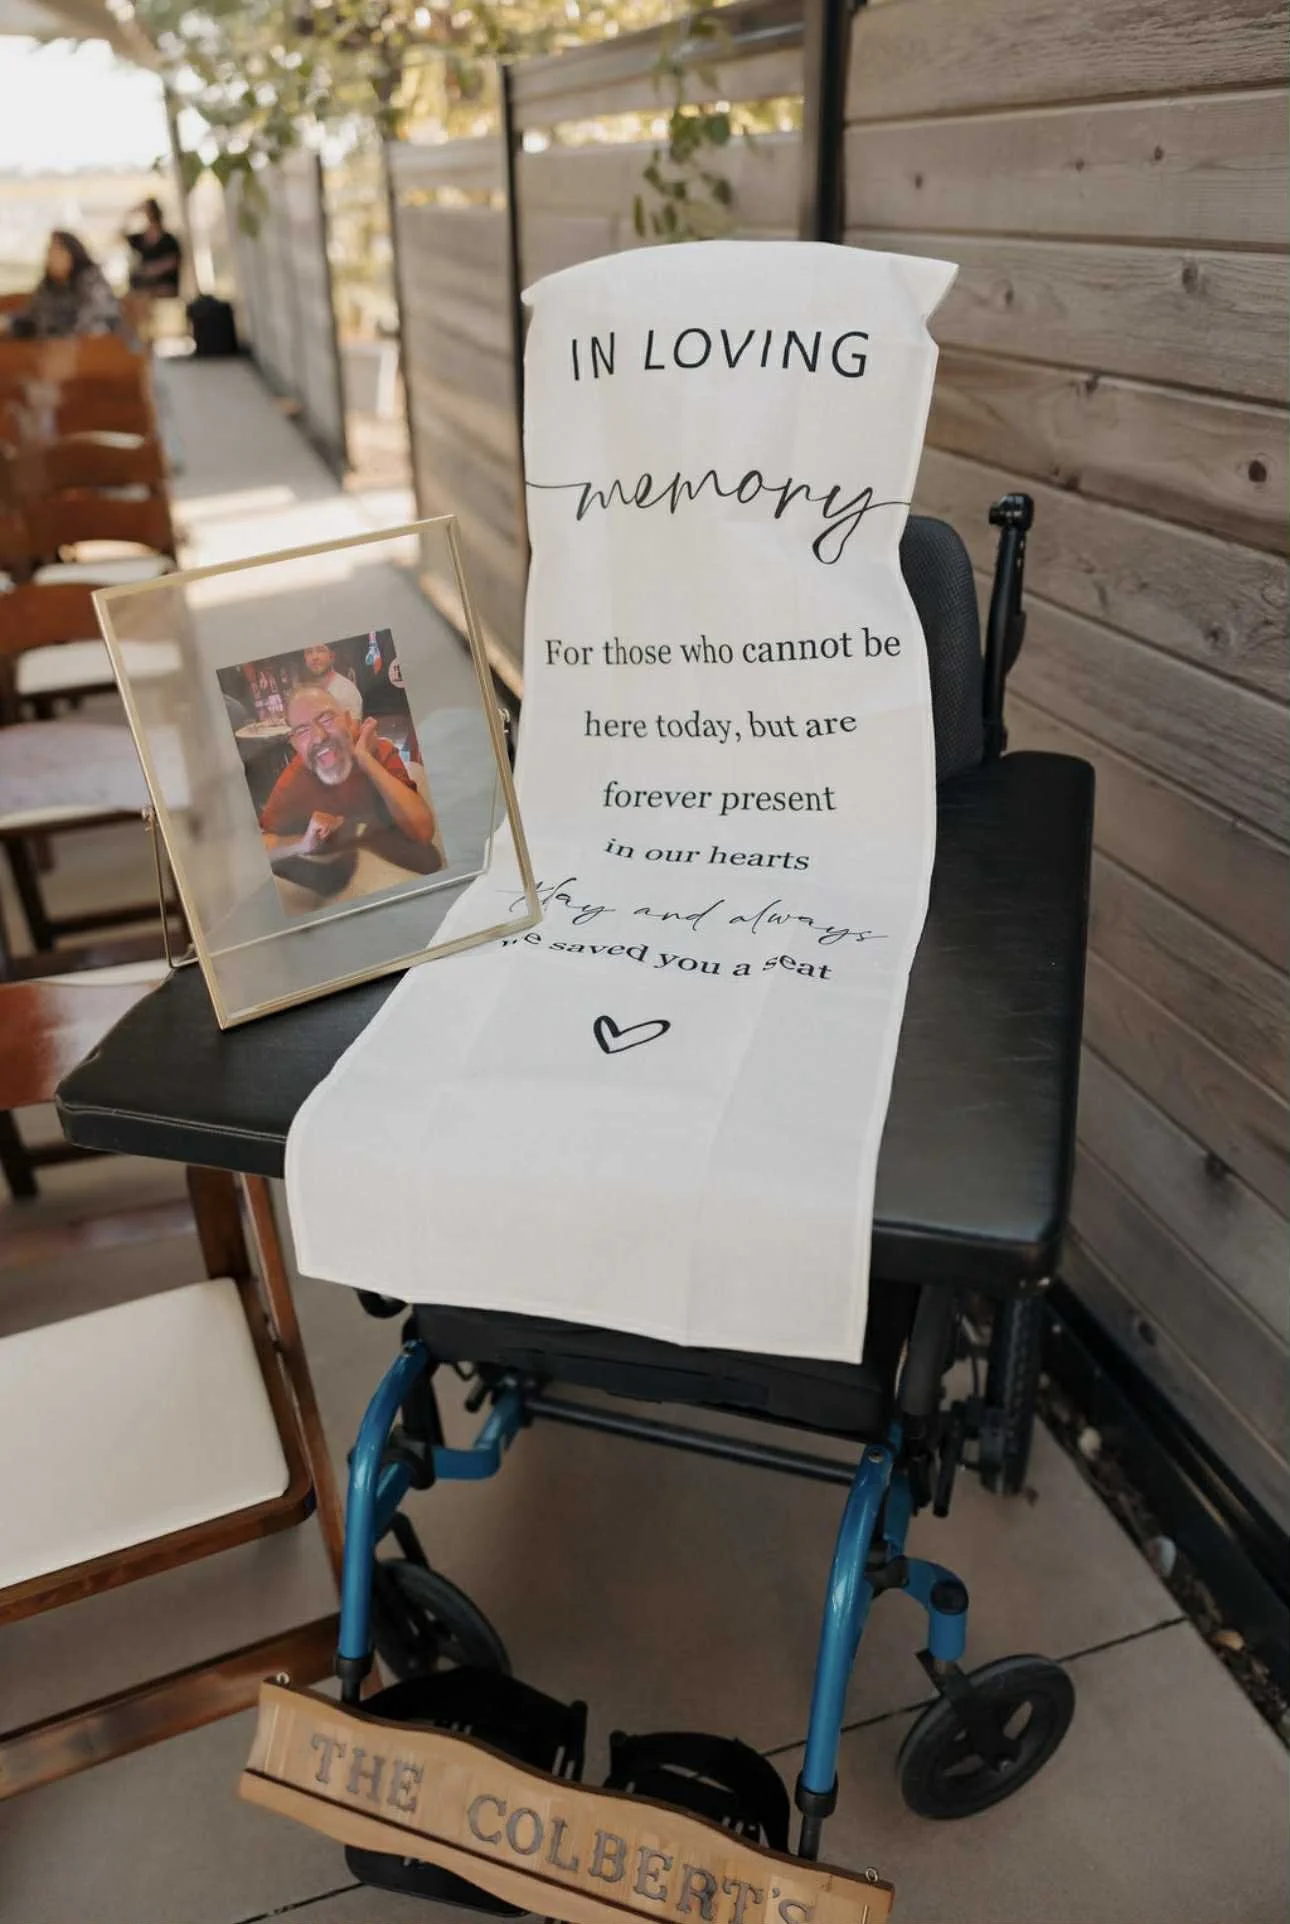 IN LOVING
memory
For those who cannot be
here today, but are
forever present
in our hearts
and always
saved you a seat
THE COLBERT'S